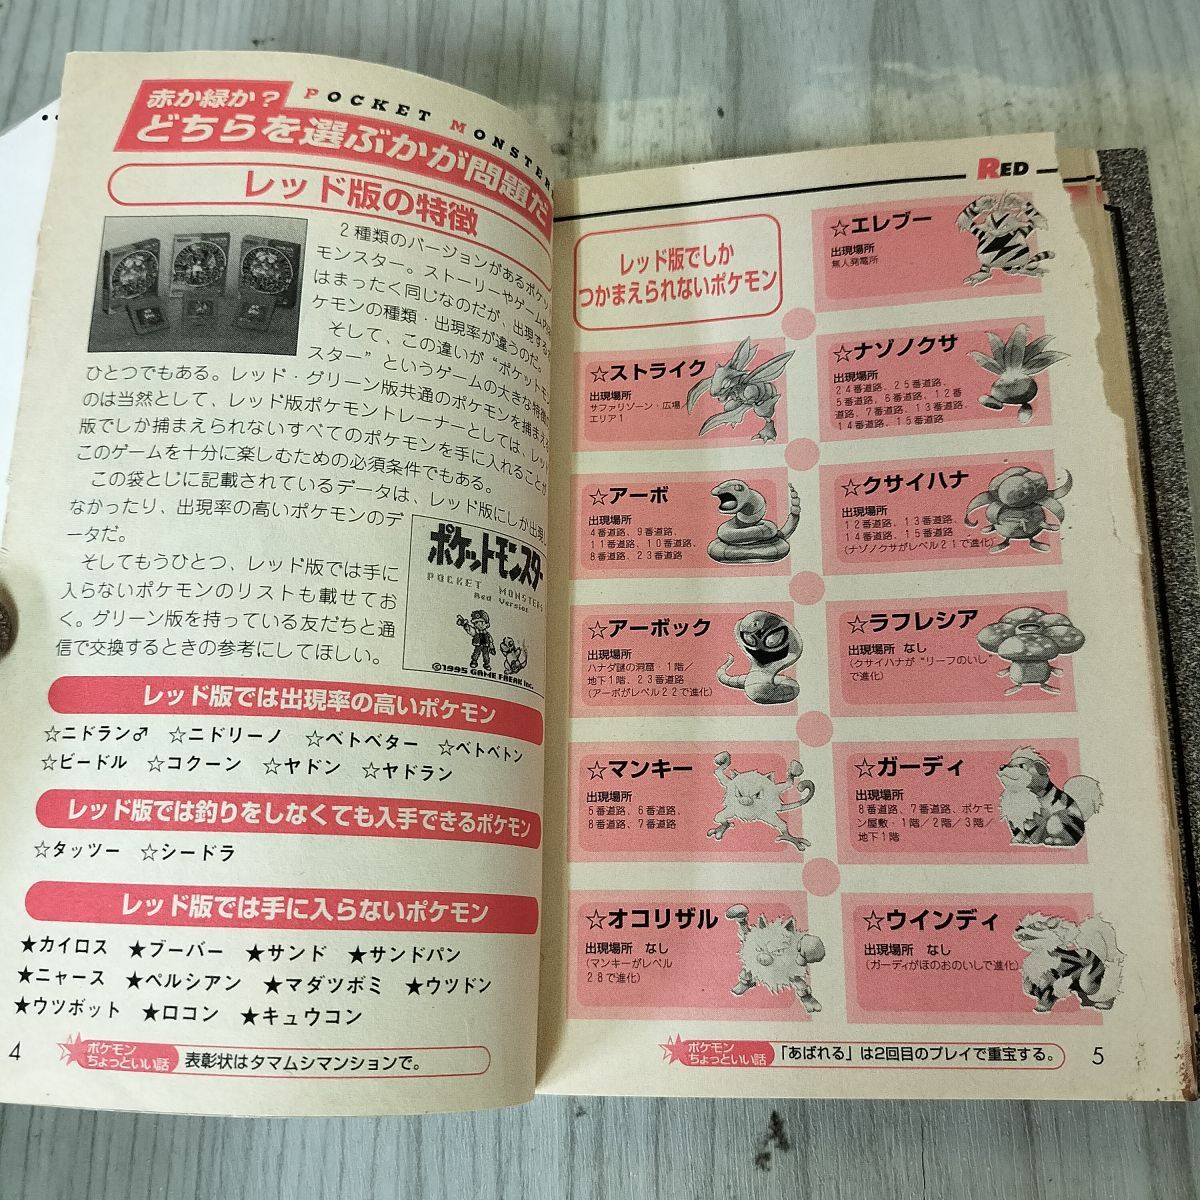 赤か緑か?
POCKET MONSTER
どちらを選ぶかが問題だ
レッド版の特徴
2種類のバージョンがあるポケッ
モンスター。ストーリーやゲーム内
はまったく同じなのだが、出現する
ケモンの種類・出現率が違うのだ。
そして、この違いが“ポケットモン
スター”というゲームの大きな特徴の
ひとつでもある。レッド・グリーン版共通のポケモンを捕まえる
のは当然として、レッド版ポケモントレーナーとしては、レッド
版でしか捕まえられないすべてのポケモンを手に入れることが
このゲームを十分に楽しむための必須条件でもある。
この袋とじに記載されているデータは、レッド版にしか出現し
なかったり、出現率の高いポケモンのデ
ータだ。
そしてもうひとつ、レッド版では手に
入らないポケモンのリストも載せてお
く。グリーン版を持っている友だちと通
信で交換するときの参考にしてほしい。
ポケットモンスター
POCKET MONSTERS
Red Version
©1995 GAME FREAK inc.
レッド版では出現率の高いポケモン
☆ニドラン♂ ☆ニドリーノ ☆ベトベター ☆ベトベトン
☆ビードル ☆コクーン ☆ヤドン ☆ヤドラン
レッド版では釣りをしなくても入手できるポケモン
☆タッツー ☆シードラ
レッド版では手に入らないポケモン
★カイロス ★ブーバー ★サンド ★サンドパン
★ニャース ★ペルシアン ★マダツボミ ★ウツドン
★ウツボット ★ロコン ★キュウコン
4
ポケモン
ちょっといい話
表彰状はタマムシマンションで。
RED
レッド版でしか
つかまえられないポケモン
☆エレブー
出現場所
無人発電所
☆ストライク
出現場所
サファリゾーン・広場/
エリア1
☆ナゾノクサ
出現場所
24番道路、25番道路、
5番道路、6番道路、12番
道路、7番道路、13番道路、
14番道路、15番道路
☆アーボ
出現場所
4番道路、9番道路、
11番道路、10番道路、
8番道路、23番道路
☆クサイハナ
出現場所
12番道路、13番道路、
14番道路、15番道路
(ナゾノクサがレベル21で進化)
☆アーボック
出現場所
ハナダ謎の洞窟・1階/
地下1階、23番道路
(アーボがレベル22で進化)
☆ラフレシア
出現場所 なし
(クサイハナが“リーフのいし”
で進化)
☆マンキー
出現場所
5番道路、6番道路、
8番道路、7番道路
☆ガーディ
出現場所
8番道路、7番道路、ポケモ
ン屋敷・1階/2階/3階/
地下1階
☆オコリザル
出現場所 なし
(マンキーがレベル
28で進化)
☆ウインディ
出現場所 なし
(ガーディがほのおのいしで進化)
ポケモン
ちょっといい話
「あばれる」は2回目のプレイで重宝する。
5